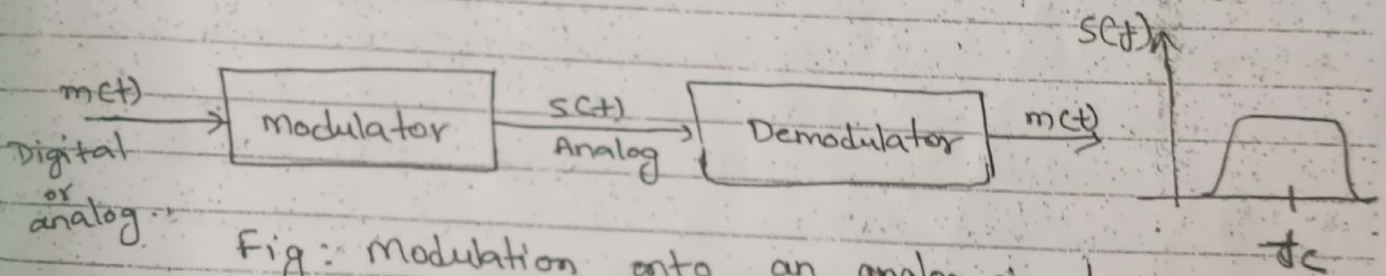 S(f)
m(t)
Digital
or
analog
Modulator
S(t)
Analog
Demodulator
m(t)
fc
Fig: Modulation onto an